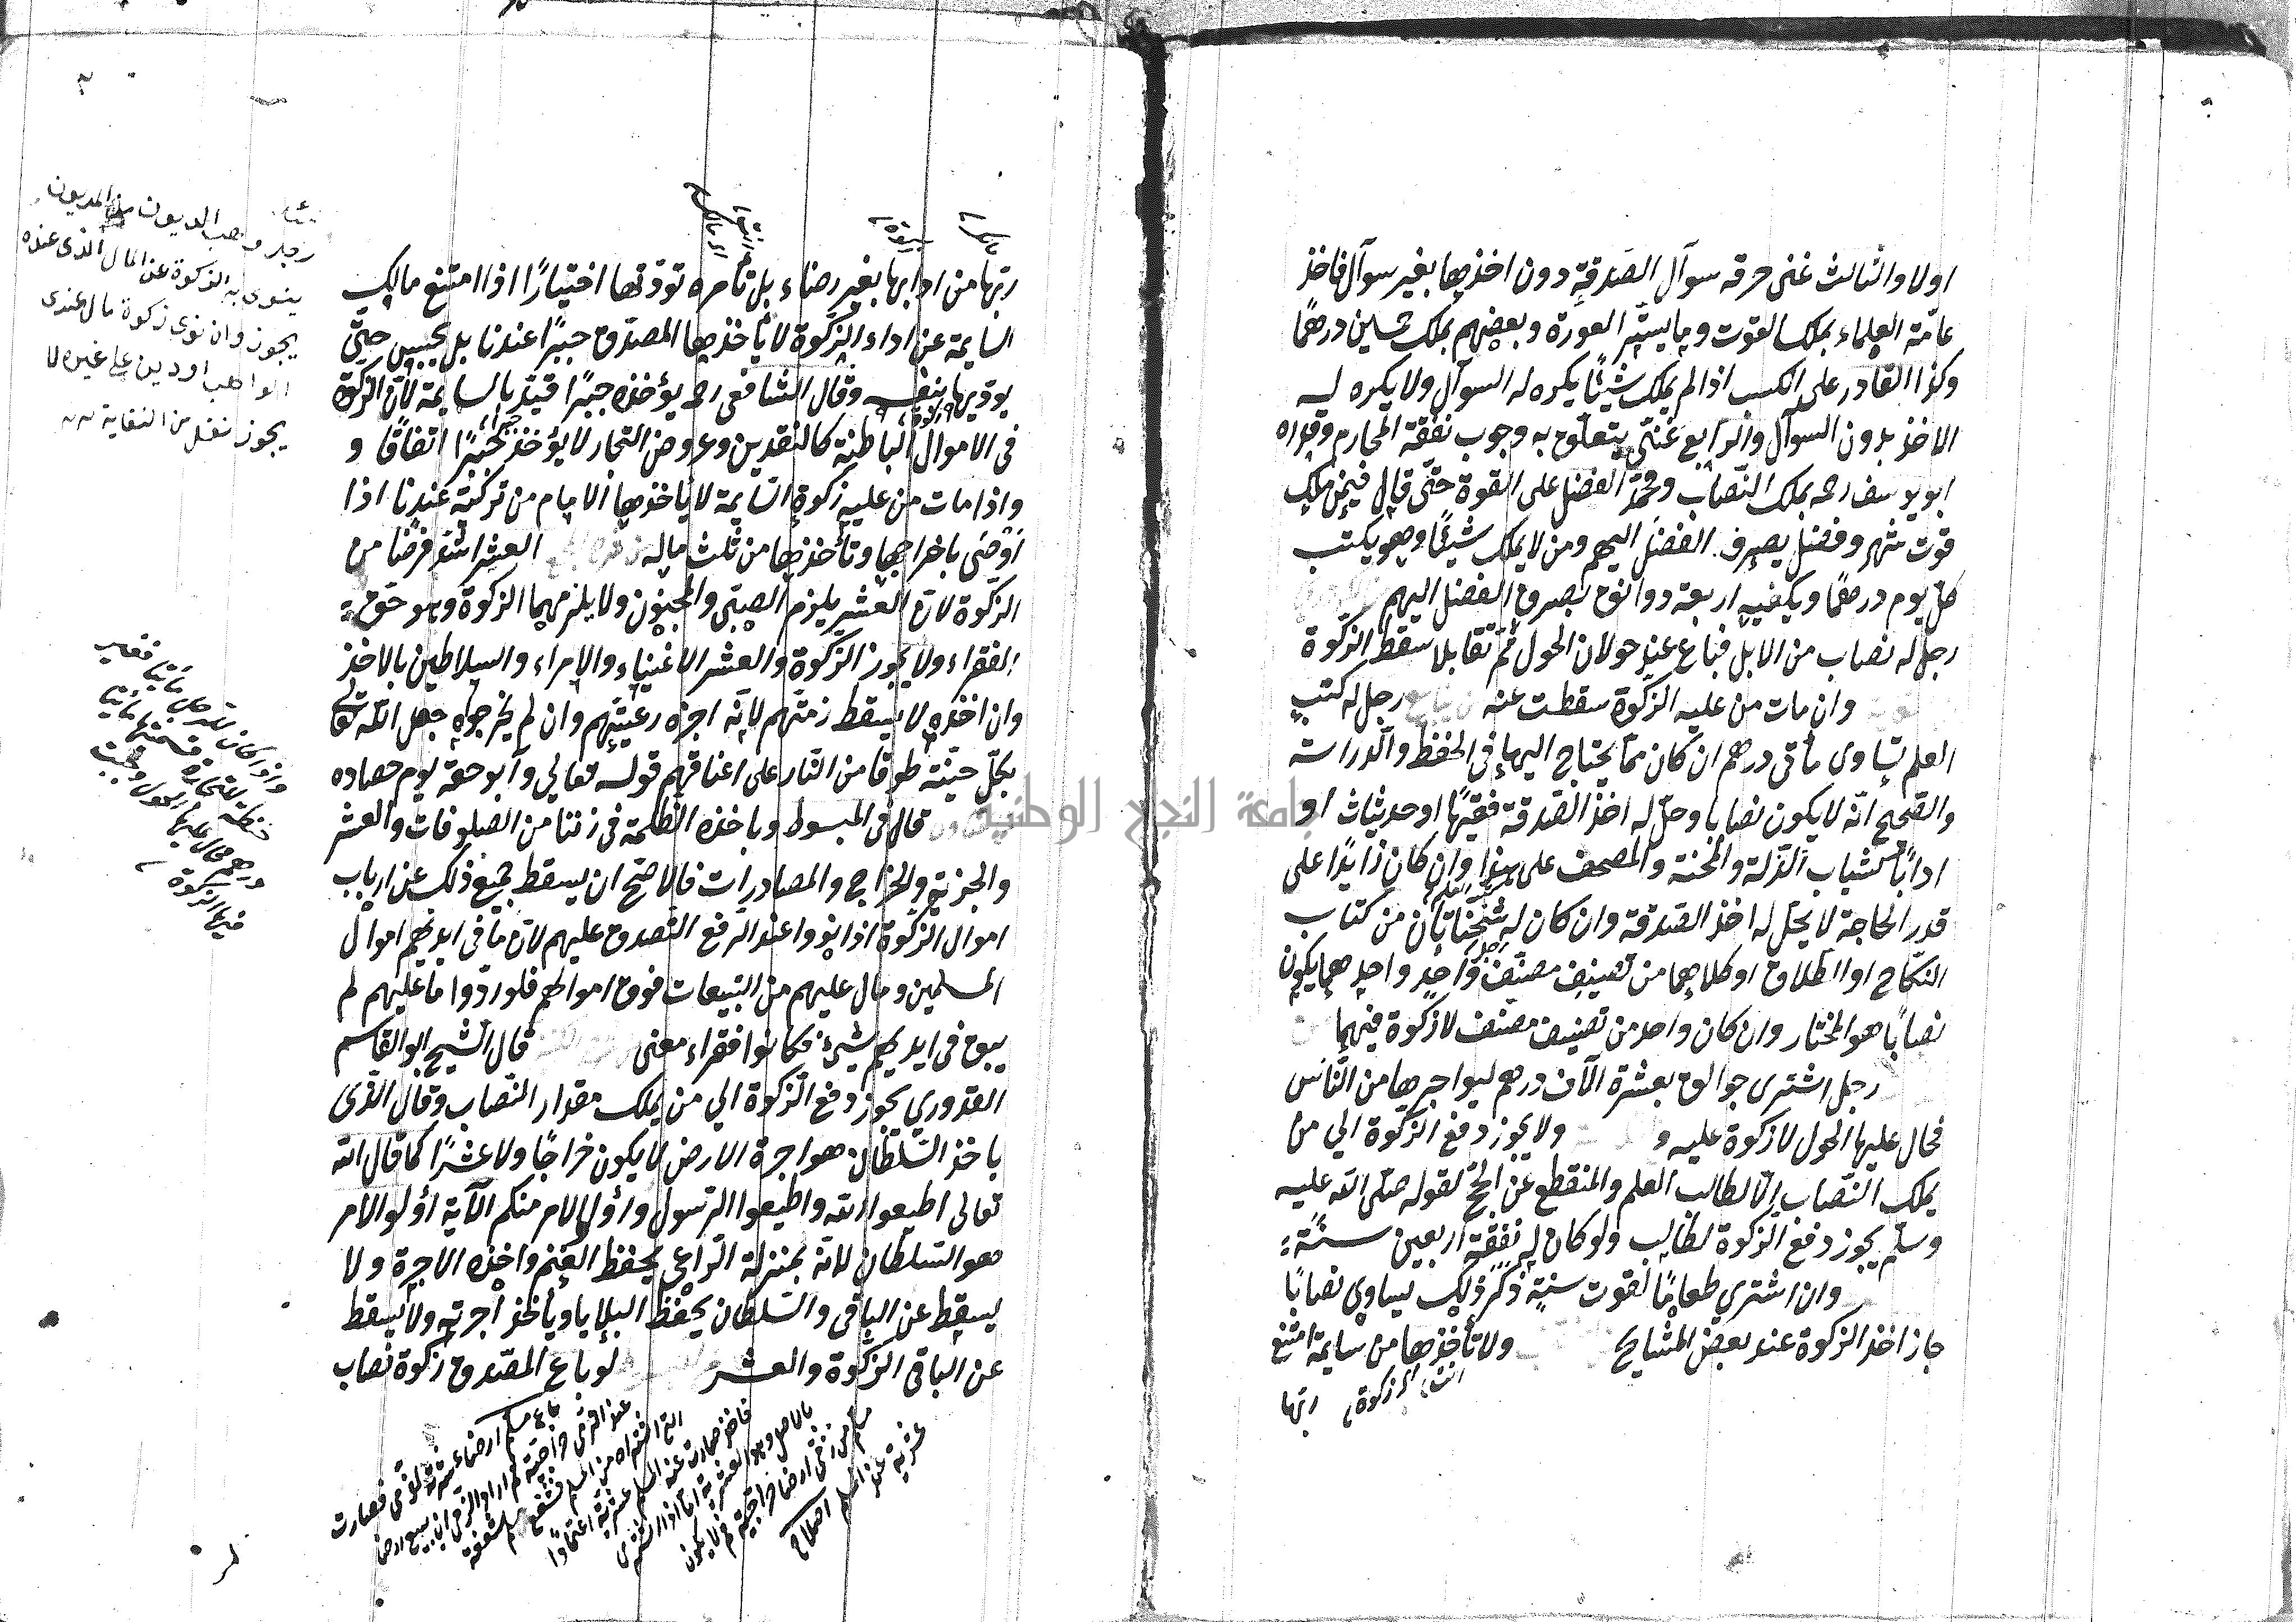 اولا والثالث غنى حرقه سوآل الصَدقةِ دون اخذها بغير سوآل فاخذ
عامّة العلماء بملك القوت وما يستر العورة وبعضهم بملك خمسين درهمًا
وكذا القادر على الكسب اذا لم يملك شيئًا يكره له السوآل ولا يكره له
الاخذ بدون السوآل والرابع غنىً يتعلّق به وجوب نفقة المحارم وقدره
ابو يوسف رحه بملك النّصاب ومحمّد الفضل على القوة حتّى قال فيمن ملك
قوت شهر وفضل يصرف الفضل اليهم ومن لا يملك شيئًا وهو يكتب
كلّ يوم درهمًا ويكفيه اربعة دوانق يصرف الفضل اليهم
رجل له نصاب من الابل فباع عند حولان الحول ثمّ تقابلا سقط الزكوة
وان مات من عليه الزكوة سقطت عنه رجل له كتب
العلم تساوى مأتى درهم ان كان ممّا يحتاج اليها فى الحفظ والدراسته
والصّحيح انّه لا يكون نصابا وحلّ له اخذ الصّدقة فقهًا او حديثاث او
ادابًا كشياب الذلة والمحنة والمصحف على هذا وان كان زايدًا على
قدر الحاجة لا يحلّ له اخذ الصّدقة وان كان له نسختان من كتاب
النكاح او الطلاق او كلاهما من تصنيف مصنّف واحد واحدهما يكون
نصابًا هو المختار وان كان واحد من تصنيف مصنف لا زكوة فيهما
رجل اشترى جوالق بعشرة الآف درهم ليواجرها من النّاس
فحال عليها الحول لا زكوة عليه و ولا يجوز دفع الزّكوة الي من
يملك النّصاب الّا لطالب العلم والمنقطع عن الحجّ لقوله صلّى الله عليه
وسلّم يجوز دفع الزكوة لطالب ولو كان له نفقة اربعين سنة
وان اشترى طعامًا لقوت سنةٍ ذكر ذلك يساوى نصابًا
جاز اخذ الزكوة عند بعض المشايخ ولا تأخذها من سايمة امتنع
اى زكوة ربّها
ربّها من ادابها بغير رضاء بل تأمره تودّتها اختيارًا اذا امتنع مالك
السايمة عن اداء الزكوة لا يأخذها المصدّق جبرًا عندنا بل يحبس حتّى
يودّيها بنفسه وقال الشافعى رحه يؤخذه جبرًا قيّد بالسايمة لانّ الزكوة
فى الاموال الباطنة كالنقدين وعروض التجار لا يؤخذ جبرًا اتفاقًا و
واذا مات من عليه زكوة السّايمة لا يأخذها الامام من تركته عندنا اذا
اَوْصَى باخراجها وتأخذها من ثلث ماله العشر اشدّ فرضًا من
الزكوة لانّ العشر يلزم الصبّى والمجنون ولا يلزمهما الزكوة وهو حقّ
الفقراء ولا يجوز الزكوة والعشر الاغنياء والامراء والسلاطين بالاخذ
وان اخذه لا يسقط زمتهم لانّه اجره رعيتهم وان لم يخرجوه جعل الله تعالى
بكلّ حبّة طوقا من النّار على اعناقهم قوله تعالي وآتو حقه يوم حصاده
قال فى المبسوط وياخذه الظّلمة فى زننا من الصلوفات والعشر
والجزية والخراج والمصادرات فالاصّح ان يسقط جميع ذلك عن ارباب
اموال الزكوة اذا نووا عند الرفع التصدق عليهم لانّ ما فى ايديهم اموال
المسلمين ومال عليهم من التبعات فوق اموالهم فلو ردّوا ما عليهم لم
يبق فى ايديهم شىء فكانوا فقراء معنى قال الشيخ ابو القاسم
القدورى يجوز دفع الزكوة الي من يملك مقدار النّصاب وقال الّذى
ياخذ السّلطان هو اجرة الارض لا يكون خراجًا ولا عشرًا كما قال الله
تعالى اطيعوا الله واطيعوا الرّسول واُولى الامر منكم الآية اولو الامر
هو السّلطان لانّه بمنزلة الرّاعى يحفظ الغنم واخذه الاجرة ولا
يسقط عن الباقى والسّلطان يحفظ البلايا ويأخذ اجرته ولا يسقط
عن الباقى الزكوة والعشر لو باع المصّدق زكوة نصاب
رجل وهب الديون من المديون
ينوى به الزكوة عن المال الذى عنده
يجوز وان نوى زكوة مال عندى
الواهب او دين على غيره لا
يجوز نقل من النقاية
واذا كان
درهم فحال عليها الحول وجبت
فيها الزكوة
جامعة النجاح الوطنية